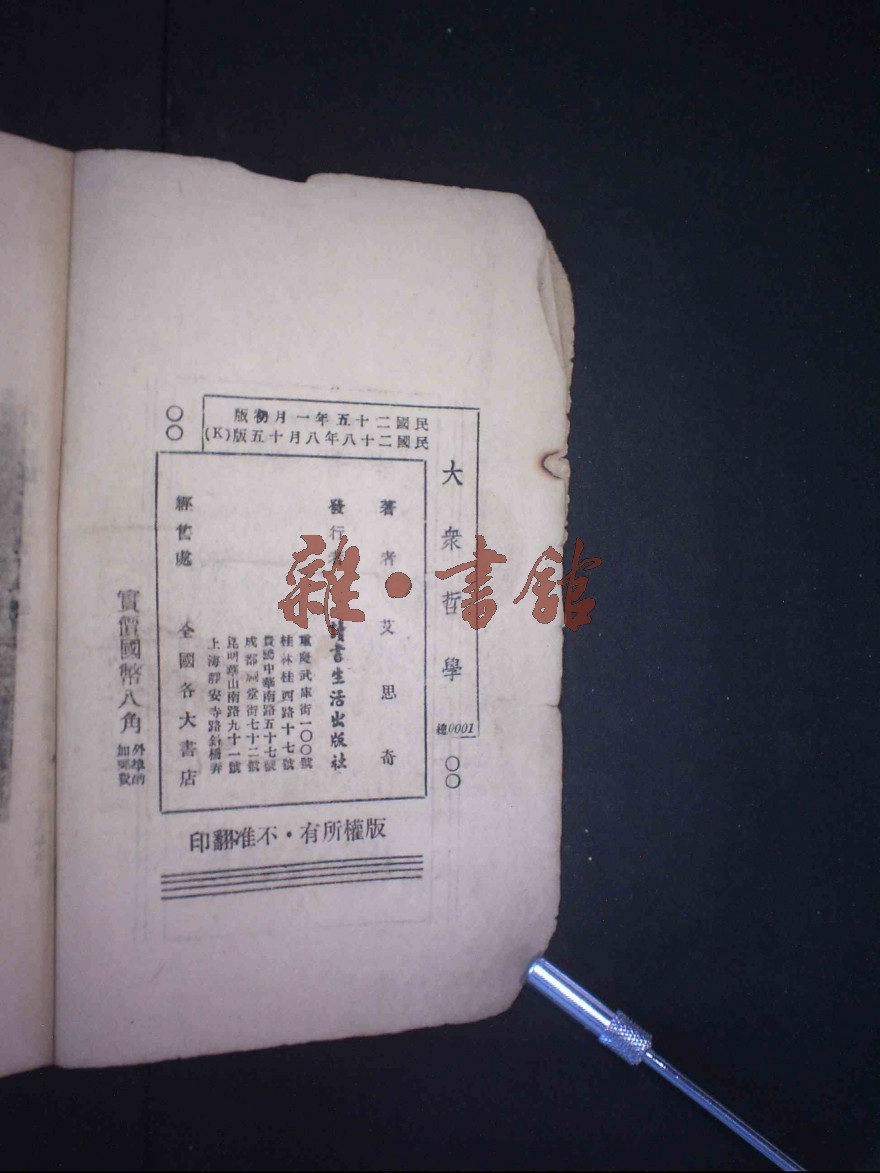 民國二十五年一月初版
民國二十八年八月十五版(K)
大衆哲學
總0001
著者 艾思奇
發行者 讀書生活出版社
重慶武庫街一〇〇號
桂林桂西路十七號
貴陽中華南路五十七號
成都祠堂街七十二號
昆明華山南路九十一號
上海靜安寺路斜橋弄
經售處 全國各大書店
實價國幣八角
外埠酌
加郵費
版權所有・不准翻印
雜・書館